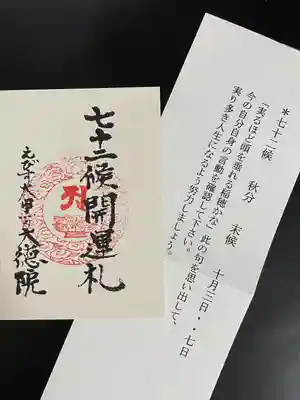 ＊七十二候　秋分　末候　十月三日・・七日
「実るほど頭を垂れる稲穂かな」此の句を思い出して、
今の自分自身の言動を確認して下さい。
実り多き人生になるよう努力しましょう。
七十二候開運札
大徳院